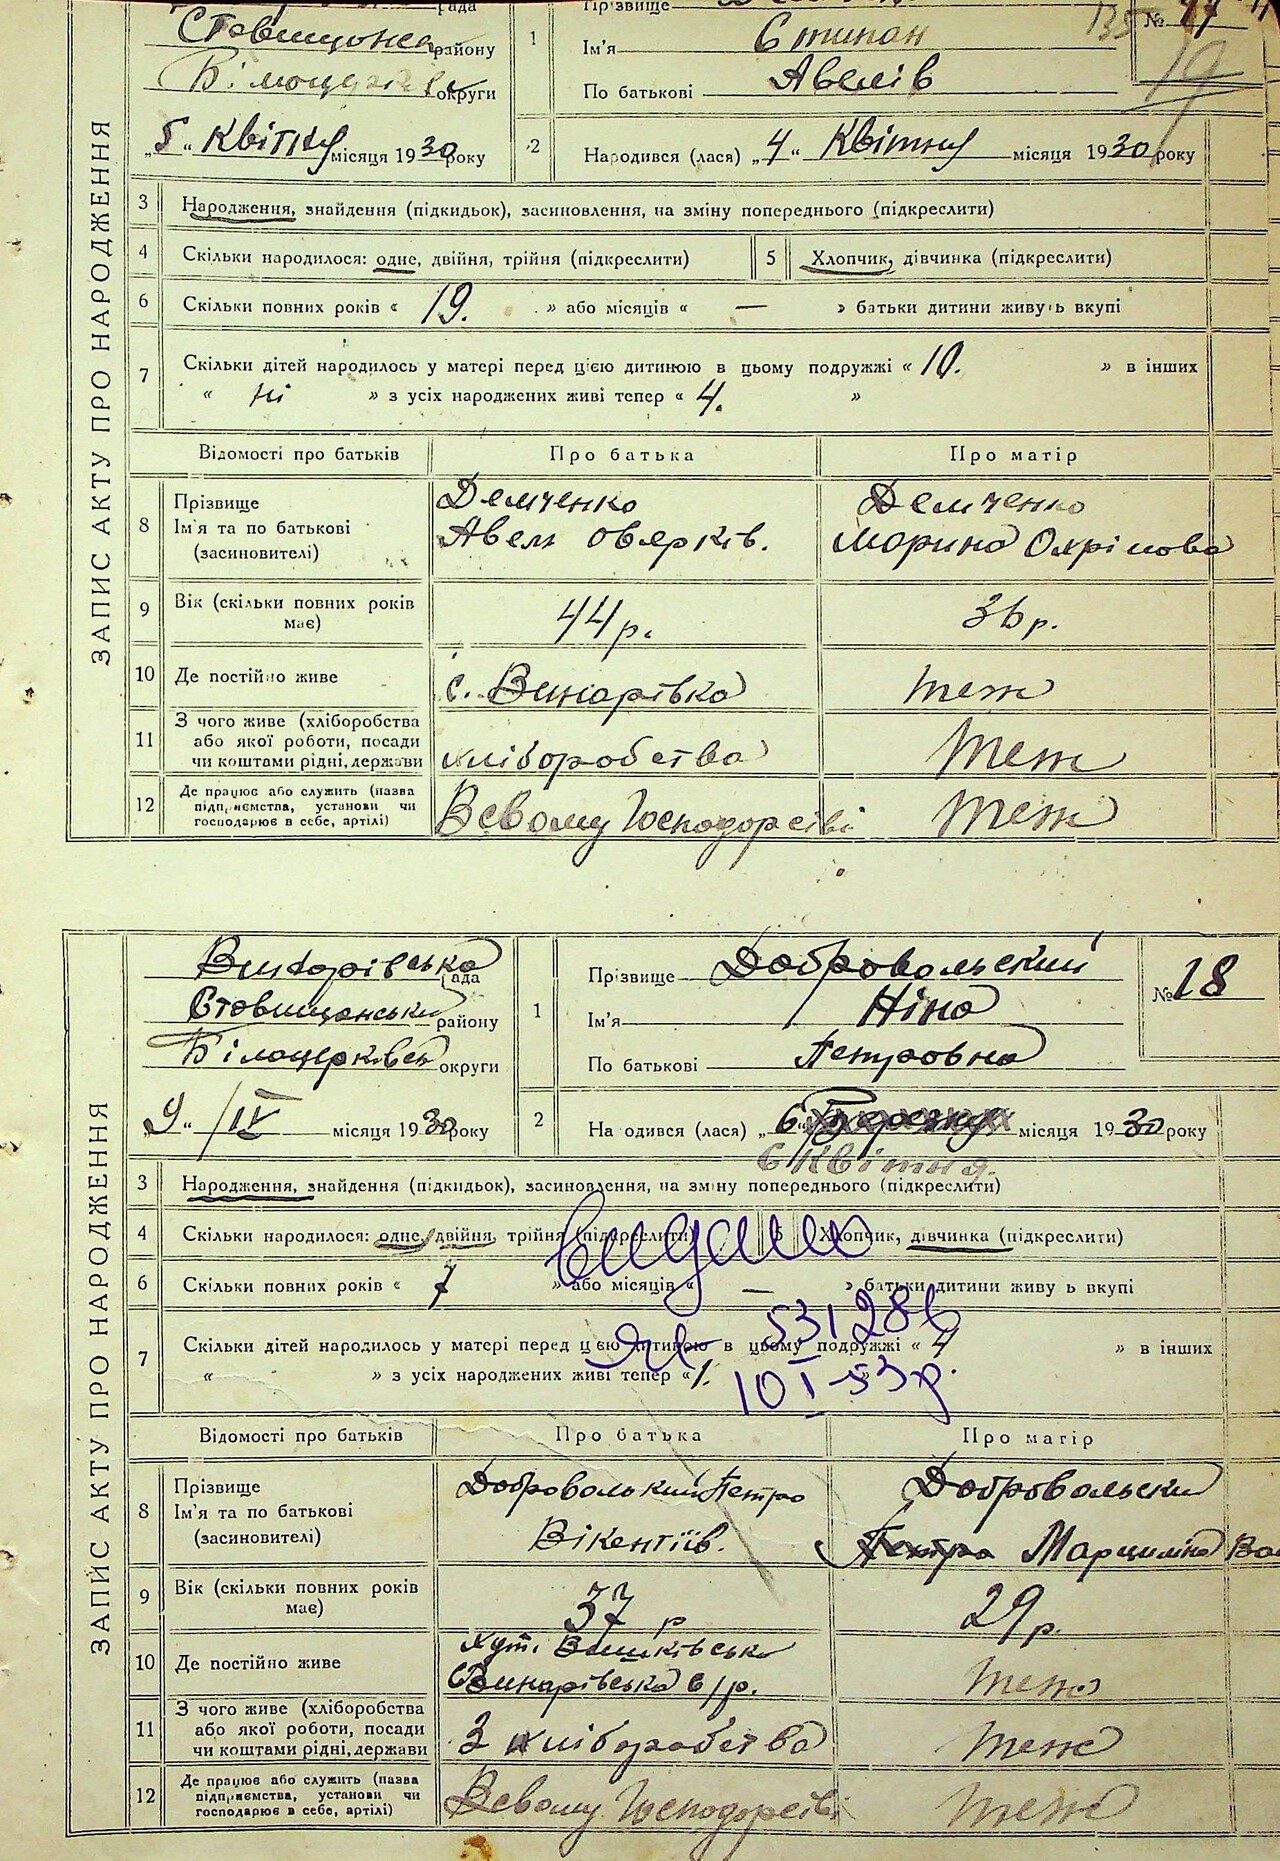 рада
Прізвище
№ 17
Ставищонск району
1
Ім'я Стипан
135
19
округи
По батькові Авелів
„5“ Квітня місяця 1930 року
2
Народився (лася) „4“ Квітня місяця 1930 року
ЗАПИС АКТУ ПРО НАРОДЖЕННЯ
3 Народження, знайдення (підкидьок), засиновлення, на зміну попереднього (підкреслити)
4 Скільки народилося: одне, двійня, трійня (підкреслити) 5 Хлопчик, дівчинка (підкреслити)
6 Скільки повних років « 19. » або місяців « — » батьки дитини живуть вкупі
7 Скільки дітей народилось у матері перед цією дитиною в цьому подружжі « 10. » в інших
« ні » з усіх народжених живі тепер « 4. »
Відомості про батьків Про батька Про матір
8 Прізвище Демченко Демченко
Ім'я та по батькові Авель Оверків. Морина Охрімова
(засиновителі)
9 Вік (скільки повних років має) 44 р. 36 р.
10 Де постійно живе с. Винарівка теж
11 З чого живе (хліборобства
або якої роботи, посади
чи коштами рідні, держави хліборобства теж
12 Де працює або служить (назва
підприємства, установи чи
господарює в себе, артілі) Всвому Господорстві теж
ЗАПИС АКТУ ПРО НАРОДЖЕННЯ
Винарівська рада
Прізвище Добровольский
№ 18
Ставищанськи району
1
Ім'я Ніна
Білоцерківськ округи
По батькові Петровна
„9“ / IV місяця 1930 року
2
Народився (лася) „6“ Березня місяця 1930 року
6 квітня.
3 Народження, знайдення (підкидьок), засиновлення, на зміну попереднього (підкреслити)
4 Скільки народилося: одне, двійня, трійня (підкреслити) 5 Хлопчик, дівчинка (підкреслити)
видано
6 Скільки повних років « 7 » або місяців « — » батьки дитини живуть вкупі
531286
7 Скільки дітей народилось у матері перед цією дитиною в цьому подружжі « 4 » в інших
« » з усіх народжених живі тепер « 1. »
10 I - 53 р.
Відомості про батьків Про батька Про матір
8 Прізвище Добровольський Петро Добровольски
Ім'я та по батькові Вікентіїв. Петро Марциліна
(засиновителі)
9 Вік (скільки повних років має) 37 р 29 р.
10 Де постійно живе хут. теж
Винарівська с/р.
11 З чого живе (хліборобства
або якої роботи, посади
чи коштами рідні, держави З хліборобства теж
12 Де працює або служить (назва
підприємства, установи чи
господарює в себе, артілі) Всвому Господорстві теж